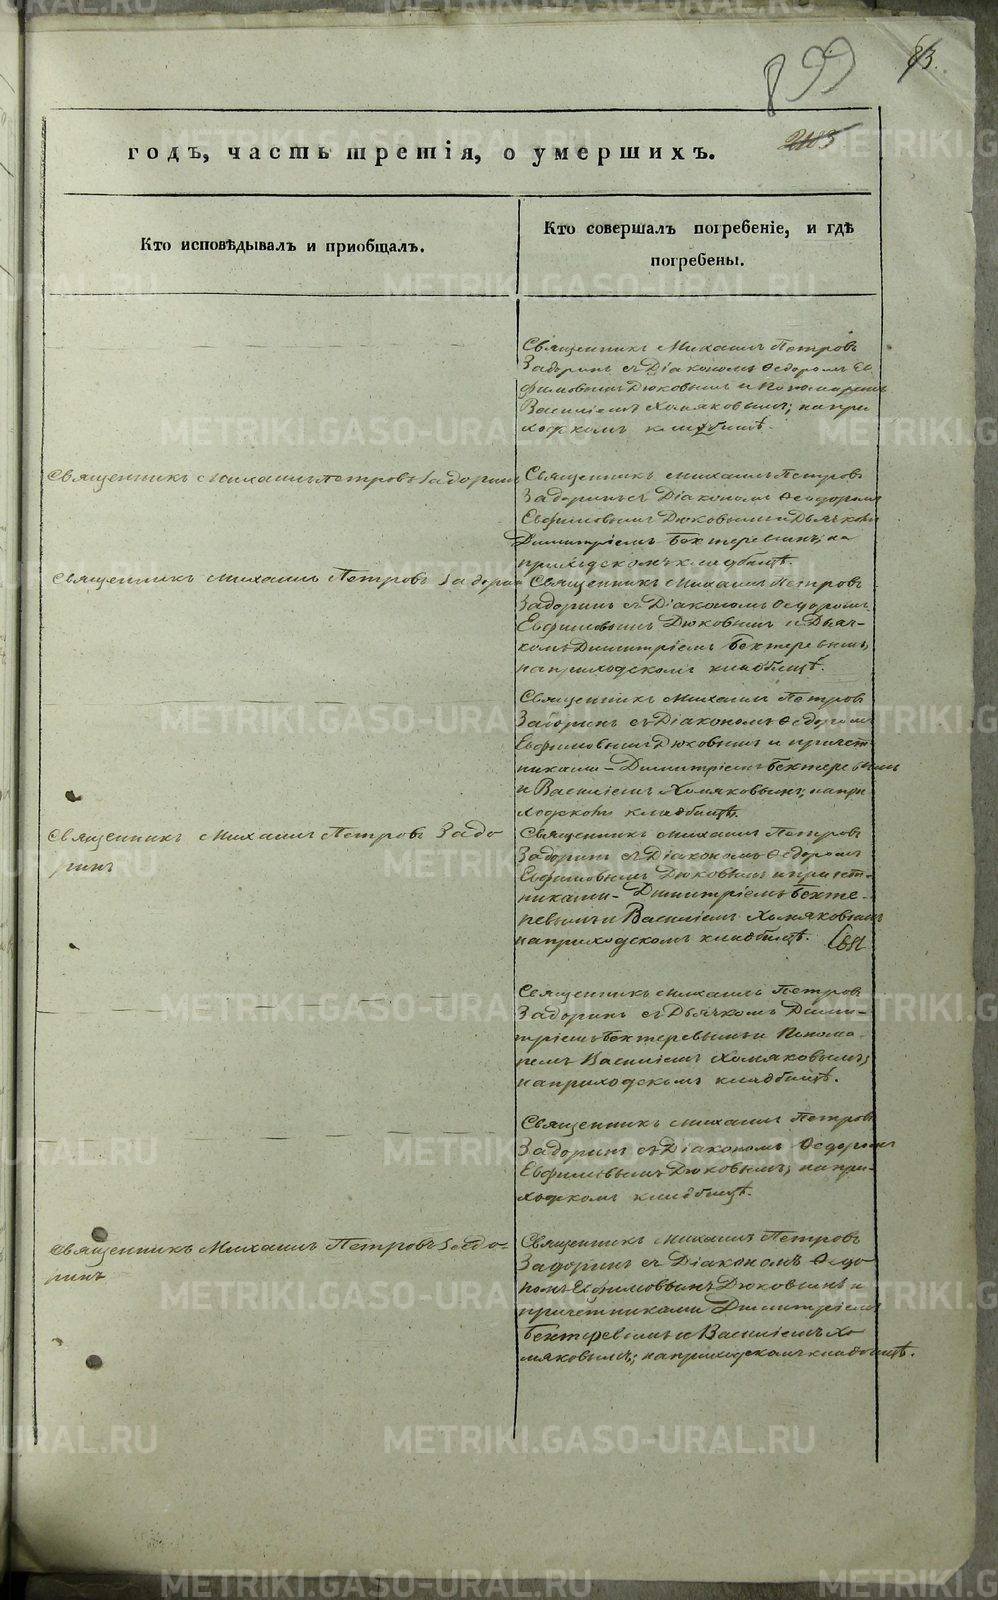 899
83.
2103
годъ, часть третія, о умершихъ.
Кто исповѣдывалъ и приобщалъ.
Кто совершалъ погребеніе, и гдѣ
погребены.
Священникъ Михаилъ Петровъ
Задоринъ съ Діакономъ Ѳедоромъ Ев
фимовымъ Дюковымъ и Пономаремъ
Василіемъ Хомяковымъ; на при
ходскомъ кладбищѣ.
Священникъ Михаилъ Петровъ Задоринъ
Священникъ Михаилъ Петровъ
Задоринъ съ Діакономъ Ѳеодоромъ
Евфимовымъ Дюковымъ и Дьячкомъ
Димитріемъ Бехтеревымъ; на
приходскомъ кладбищѣ.
Священникъ Михаилъ Петровъ Задорин
Священникъ Михаилъ Петровъ
Задоринъ съ Діакономъ Ѳедоромъ
Евфимовымъ Дюковымъ и Дьяч-
комъ Димитріемъ Бехтеревымъ;
на приходскомъ кладбищѣ.
Священникъ Михаилъ Петров
Задоринъ съ Діакономъ Ѳедоромъ
Евфимовымъ Дюковымъ и причет
никами - Димитріемъ Бехтеревымъ
и Василіемъ Хомяковымъ; на при
ходскомъ кладбищѣ.
Священникъ Михаилъ Петровъ Задо
ринъ
Священникъ Михаилъ Петровъ
Задоринъ съ Діакономъ Ѳедоромъ
Евфимовымъ Дюковымъ и причет-
никами - Димитріемъ Бехте-
ревымъ и Василіемъ Хомяковымъ
на приходскомъ кладбищѣ.
Священникъ Михаилъ Петровъ
Задоринъ съ Дьячкомъ Дими-
тріемъ Бехтеревымъ и Понома-
ремъ Василіемъ Хомяковымъ;
на приходскомъ кладбищѣ.
Священникъ Михаилъ Петров
Задоринъ съ Діакономъ Ѳедоромъ
Евфимовымъ Дюковымъ; на при-
ходскомъ кладбищѣ.
Священникъ Михаилъ Петровъ Задо-
ринъ
Священникъ Михаилъ Петровъ
Задоринъ съ Діакономъ Ѳедо
ромъ Евфимовымъ Дюковымъ и
причетниками Димитріемъ
Бехтеревымъ и Василіемъ Хо
мяковымъ; на приходскомъ кладбищѣ.
METRIKI.GASO-URAL.RU